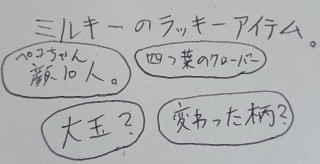 ミルキーのラッキーアイテム。
ペコちゃん
顔10人。
四つ葉のクローバー
大玉?
変わった柄?